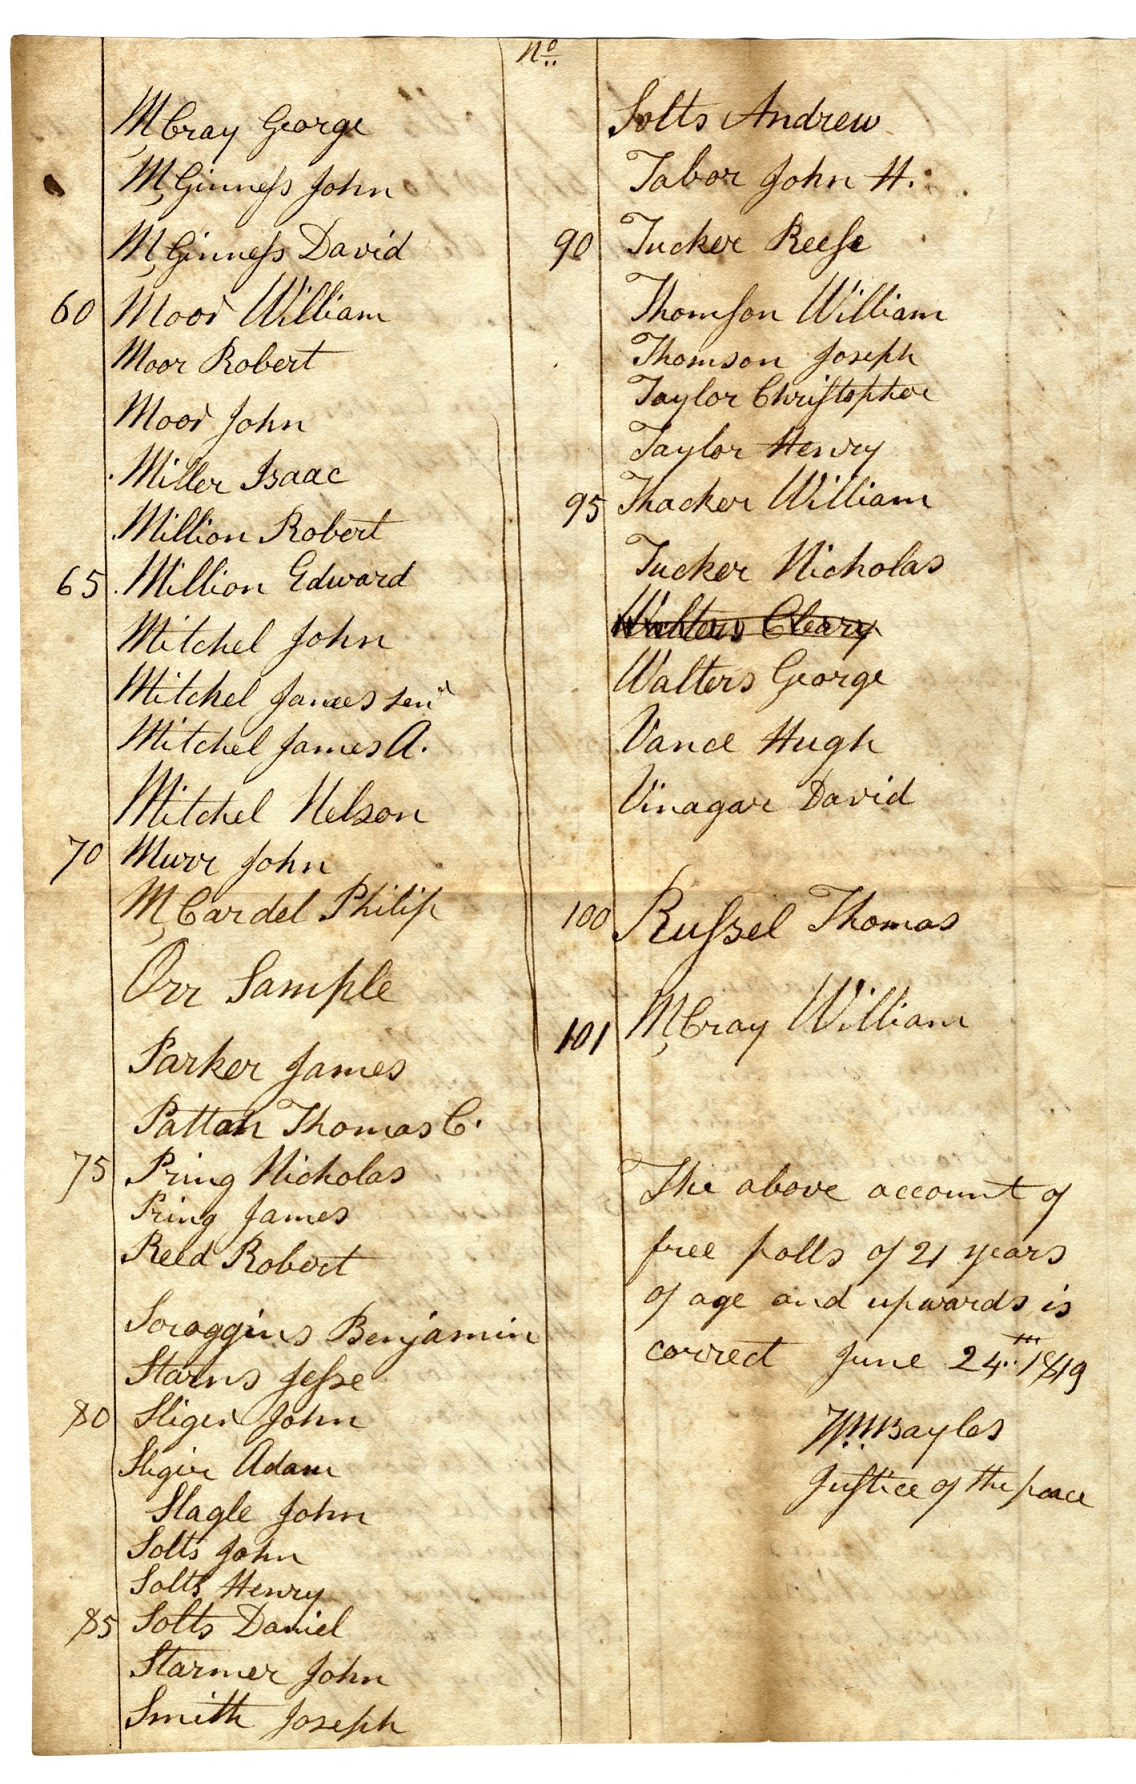 McCray George
McGinness John
McGinness David
60 Moor William
Moor Robert
Moor John
Miller Isaac
Million Robert
65 Million Edward
Mitchel John
Mitchel James Senr
Mitchel James A.
Mitchel Nelson
70 Murr John
McCardel Philip
Orr Sample
Parker James
Pattan Thomas C.
75 Pring Nicholas
Pring James
Reed Robert
Scroggins Benjamin
Starns Jesse
80 Sliger John
Sliger Adam
Slagle John
Solts John
Solts Henry
85 Solts Daniel
Starmer John
Smith Joseph
No.
Solts Andrew
Tabor John H.
90 Tucker Reese
Thomson William
Thomson Joseph
Taylor Christopher
Taylor Henry
95 Thacker William
Tucker Nicholas
Walters Cleary
Walters George
Vance Hugh
Vinagar David
100 Russel Thomas
101 McCray William
The above account of
free polls of 21 years
of age and upwards is
correct June 24th 1819
Wm Bayles
Justice of the peace